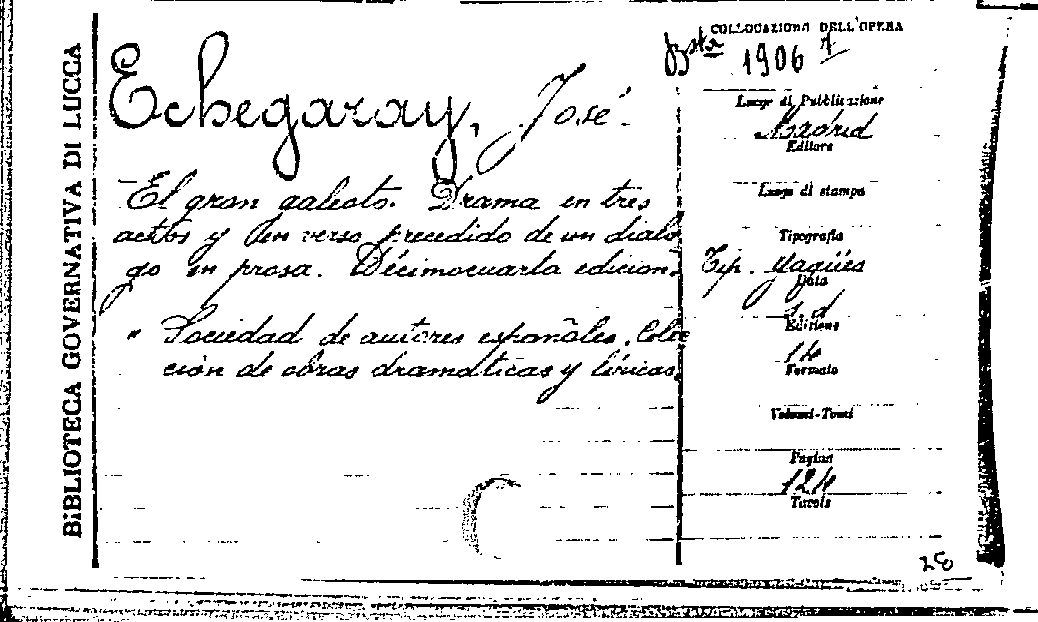 BIBLIOTECA GOVERNATIVA DI LUCCA
COLLOCAZIONE DELL'OPERA
Bsta 1906 1
Echegaray, José.
El gran galeoto. Drama en tres
actos y en verso precedido de un dialo
go en prosa. Décimocuarta edicion.
" Sociedad de autores españoles. Colec
ción de obras dramáticas y líricas.
Luogo di Pubblicazione
Madrid
Editore
Luogo di stampa
Tipografia
Tip. Yagües
Data
s. d.
Edizione
14
Formato
Volumi-Tomi
Pagine
124
Tavole
28